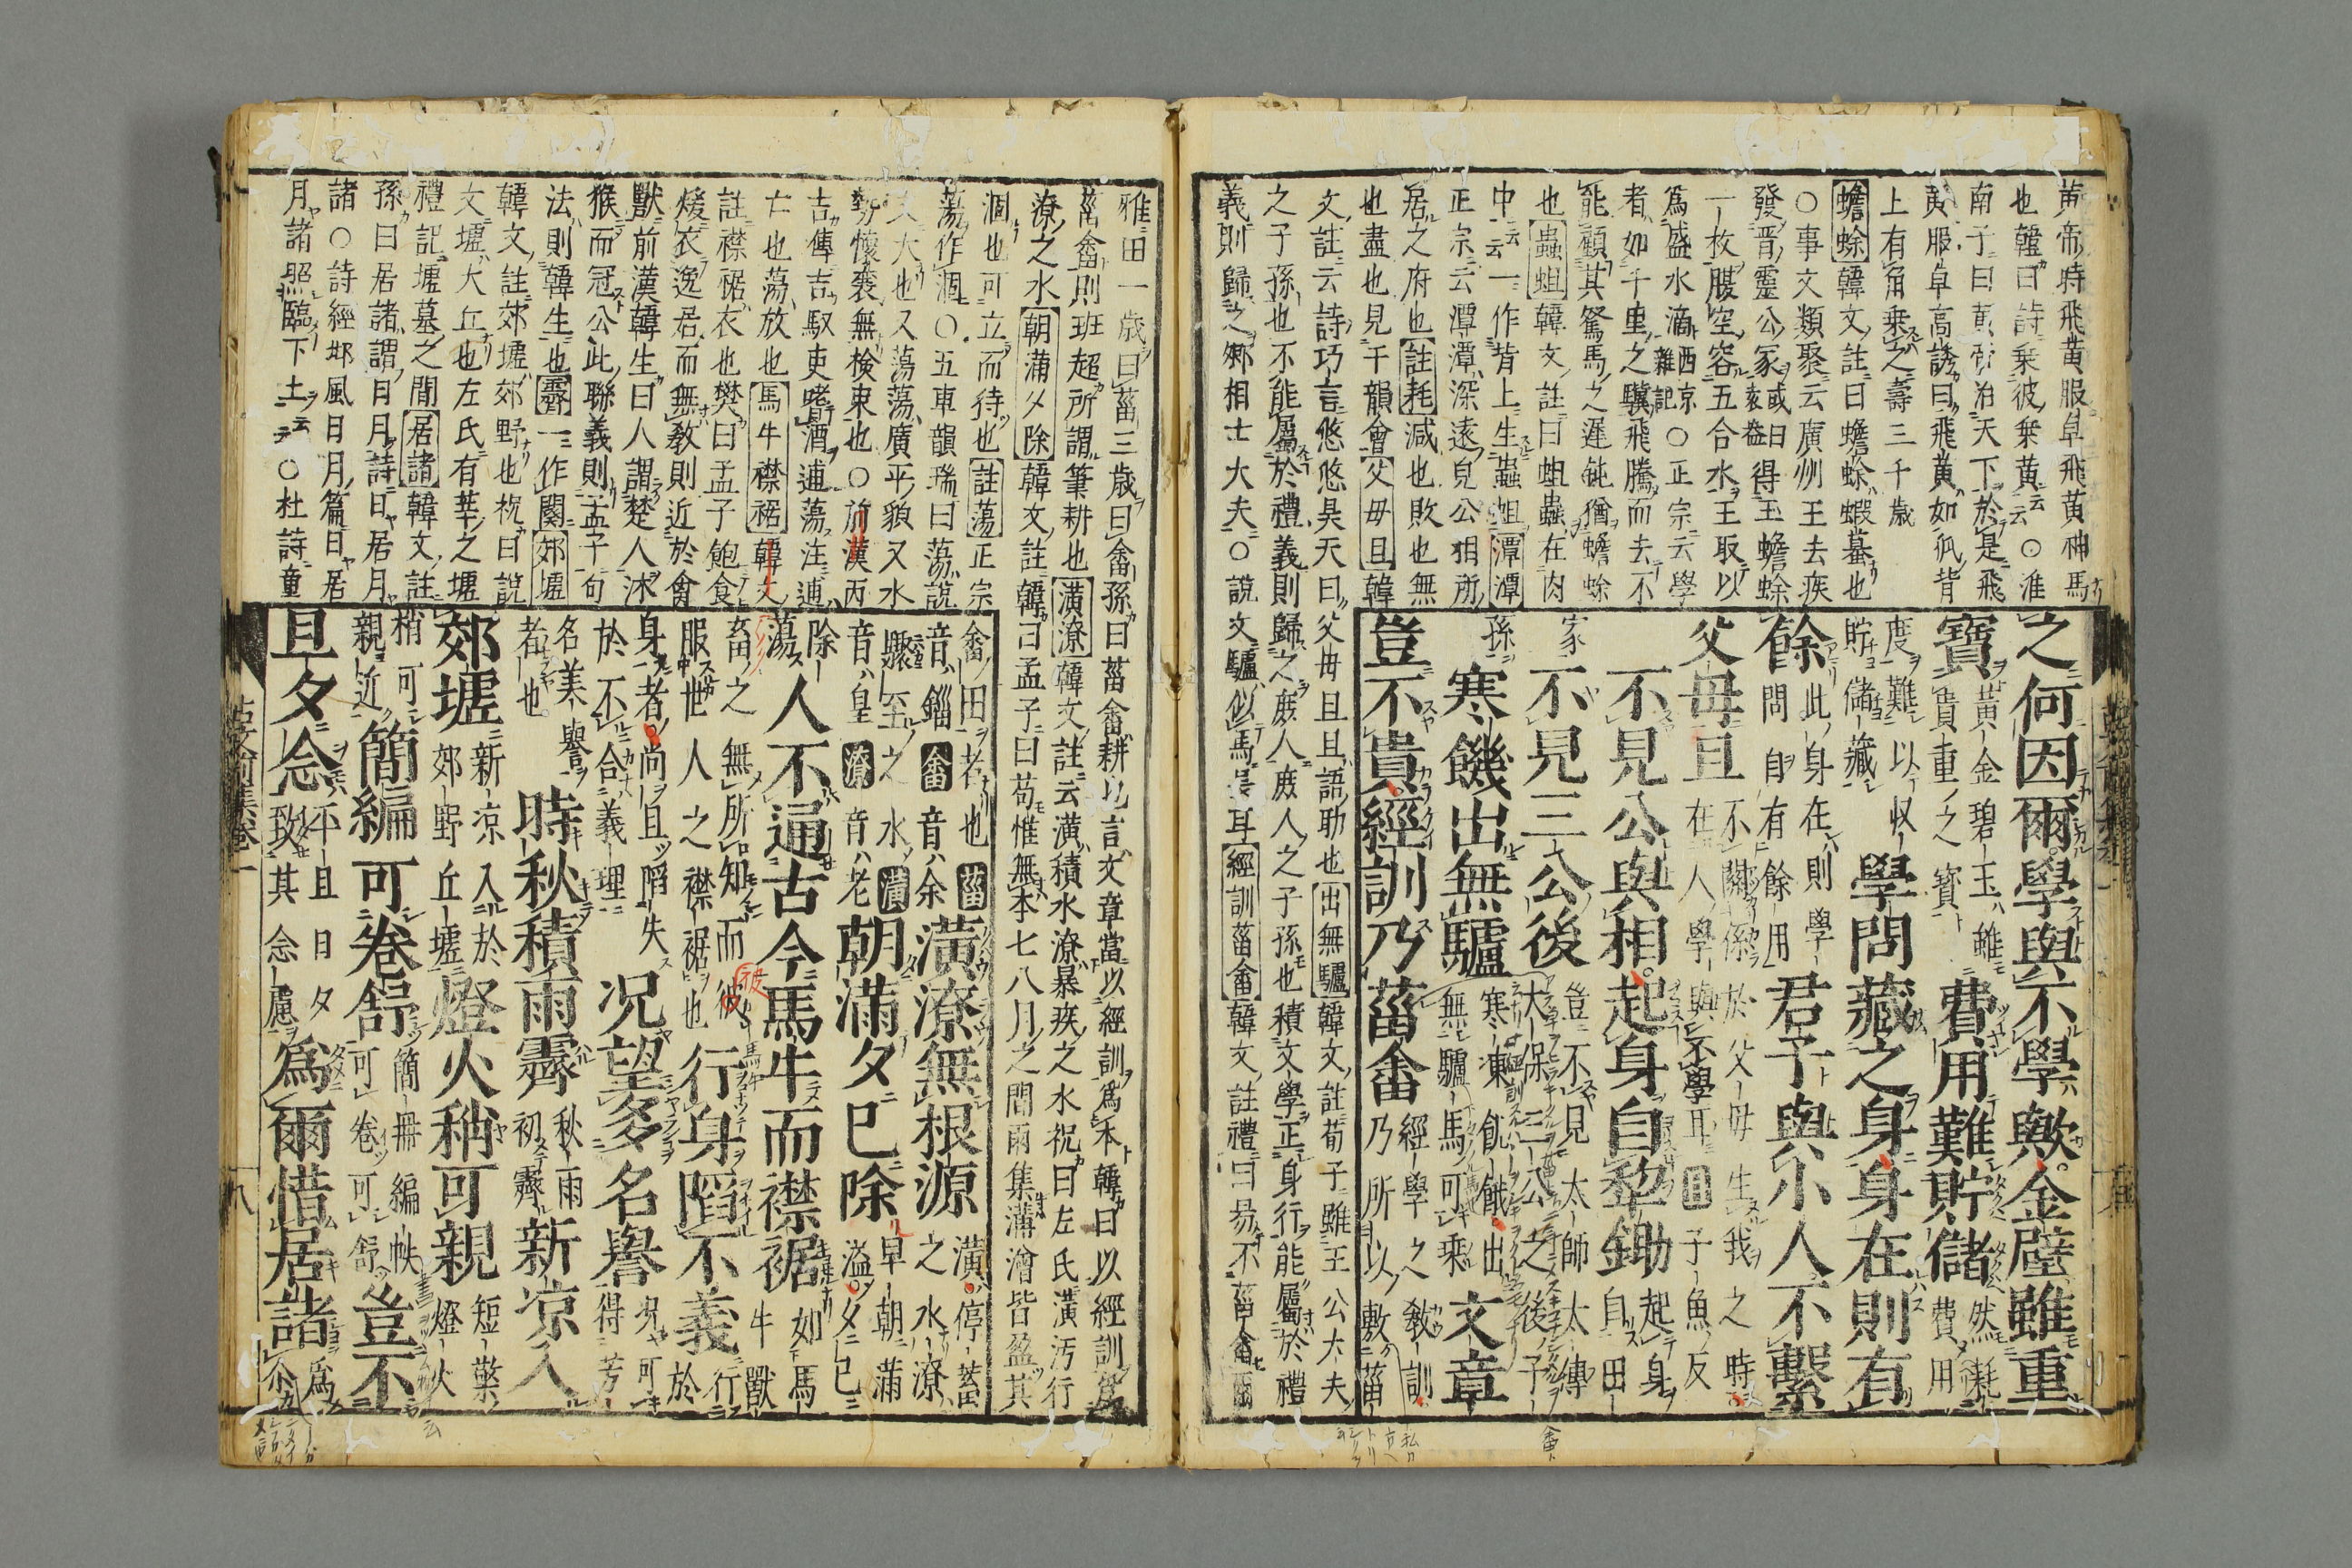 黄帝時飛黄服皁飛黄神馬
也韓曰詩乗彼乗黄云云○淮
南子曰黄帝治天下於是飛
黄服皁高誘曰飛黄如狐背
上有角乗之壽三千歳
蟾蜍韓文註曰蟾蜍蝦蟇也
○事文類聚云廣州王去疾
發晋靈公冢或曰袁盎得玉蟾蜍
一枚腹空容五合水王取以
爲盛水滴西京雜記○正宗云學
者如千里之驥飛騰而去不
能顧其駑馬之遲鈍猶蟾蜍
也蟲蛆韓文註曰蛆蟲在肉
中云一作背上生蟲蛆潭潭
正宗云潭潭深遠皃公相所
居之府也註耗減也敗也無
也盡也見于韻會父母且韓
文註云詩巧言悠悠昊天曰父母且且語助也出無驢韓文註荀子雖王公大夫
之子孫也不能屬於禮義則歸之庶人庶人之子孫也積文學正身行能屬於禮
義則歸之卿相士大夫○說文驢似馬長耳經訓菑畬韓文註禮曰易不菑畬爾
之何因爾學與不學歟金璧雖重
寶黄金碧玉雖貴重之寶費用難貯儲然耗費用
度難以収貯儲藏學問藏之身身在則有
餘此身在則學問自有餘用君子與小人不繫
父母且不關係於父母生我之時在人學與不學耳且子魚反
不見公與相起身自犂鋤起身自田
家不見三公後豈不見太師太傅大保三公之後子
孫寒饑出無驢寒凍飢餓出無驢馬可乗文章
豈不貴經訓乃菑畬經學之教訓乃所以敷菑
雅田一歳曰菑三歳曰畬孫曰菑畬耕以言文章當以經訓爲本韓曰以經訓爲
菑畬則班超所謂筆耕也潢潦韓文註云潢積水潦暴疾之水祝曰左氏潢汚行
潦之水朝滿夕除韓文註韓曰孟子曰苟惟無本七八月之間雨集溝澮皆盈其
涸也可立而待也註蕩正宗
蕩作涸○五車韻瑞曰蕩說
文大也又蕩蕩廣平貌又水
勢懷襄無檢束也○前漢丙
吉傳吉馭吏嗜酒逋蕩注逋
亡也蕩放也馬牛襟裾韓文
註襟裾衣也樊曰孟子飽食
煖衣逸居而無教則近於禽
獸前漢韓生曰人謂楚人沐
猴而冠公此聯義則孟子句
法則韓生也霽一作闋郊墟
韓文註郊墟郊野也祝曰說
文墟大丘也左氏有莘之墟
禮記墟墓之間居諸韓文註
孫曰居諸謂日月詩曰居月
諸○詩經邶風日月篇日居
月諸照臨下土云云○杜詩童
畬田者也菑音緇畬音余潢潦無根源潢停蓄之水潦
驟至之水潢音皇潦音老朝滿夕已除早朝滿溢夕已
除蕩人不通古今馬牛而襟裾如馬牛獸
畜之無所知而彼服世人之襟裾也行身陷不義行於
身者尚且陷失於不合義理况望多名譽况可得芳
名美譽者也時秋積雨霽秋雨初霽新凉入
郊墟新凉入於郊野丘墟燈火稍可親短檠燈火
稍可親近簡編可卷舒簡冊編帙可卷可舒豈不
旦夕念平旦日夕致其念慮爲爾惜居諸爲